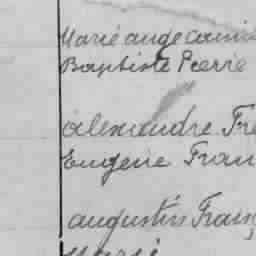 Marie ange
Baptiste Pierre
alexandre Fre
Eugenie Fran
augustin Franç
Marie